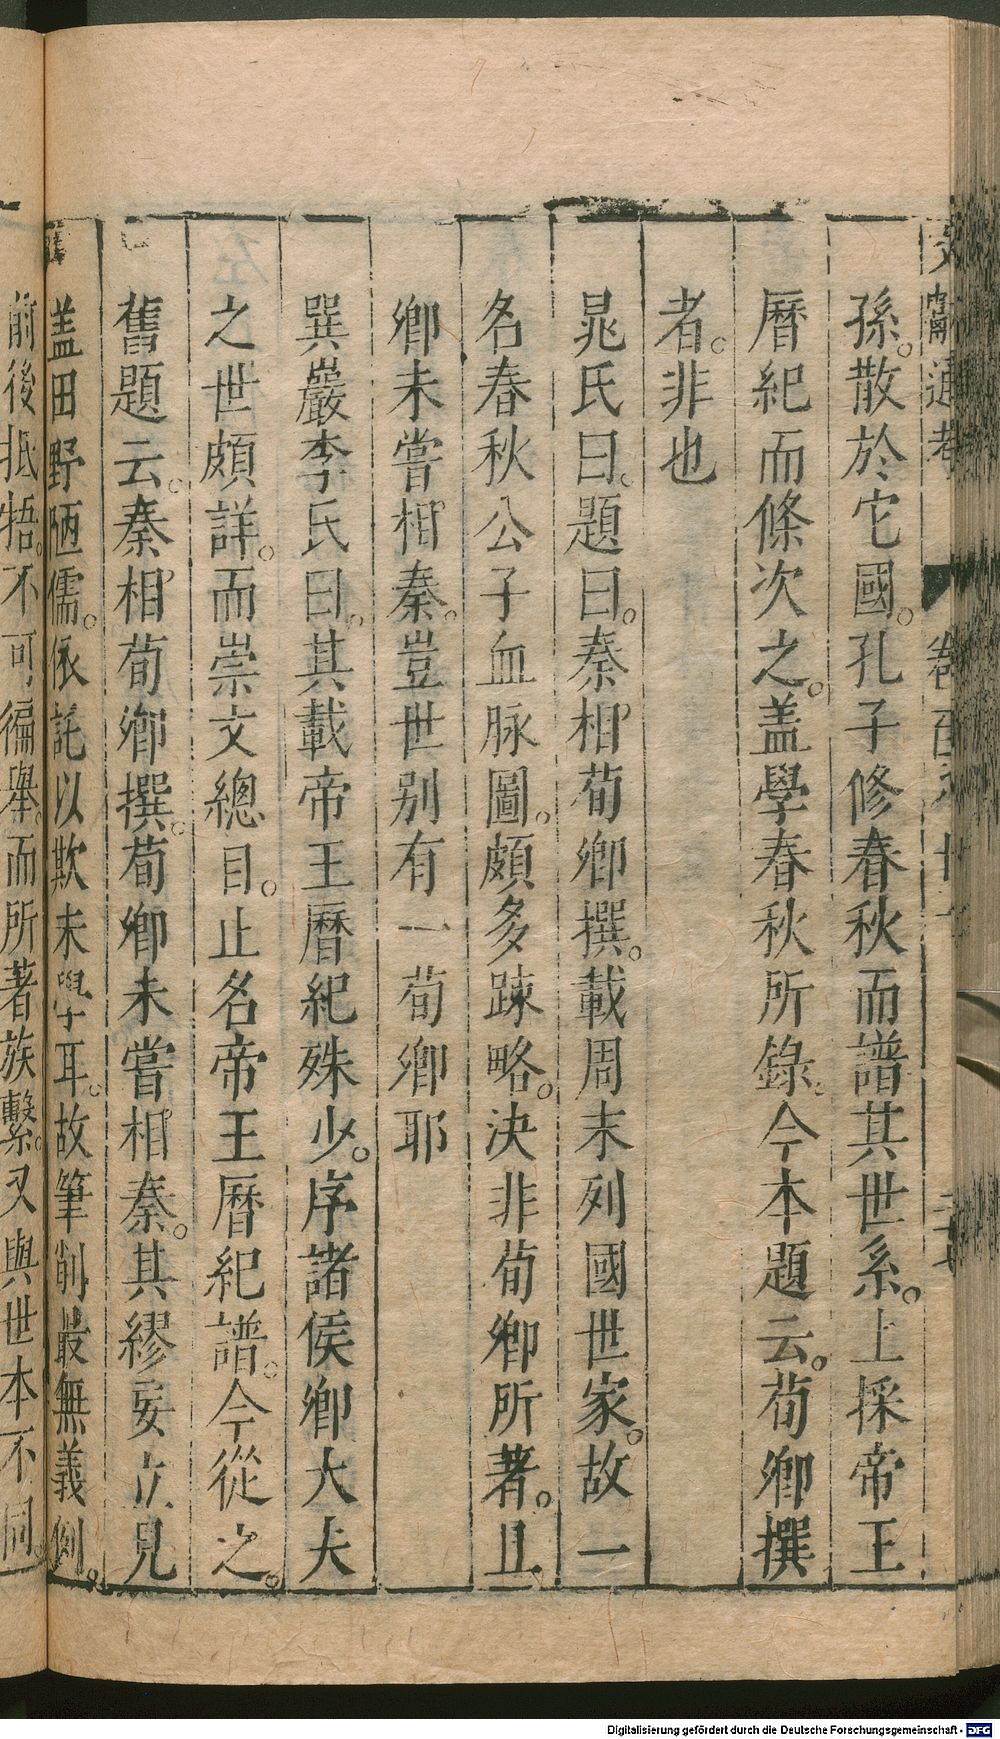 文獻通考
孫散於它國。孔子修春秋而譜其世系。上採帝王
曆紀而條次之。盖學春秋所錄。今本題云。荀卿撰
者。非也
晁氏曰。題曰。秦相荀卿撰。載周末列國世家。故一
名春秋公子血脉圖。頗多踈略。決非荀卿所著。且
卿未嘗相秦。豈世别有一荀卿耶
巽巖李氏曰。其載帝王曆紀殊少。序諸侯卿大夫
之世頗詳。而崇文總目。止名帝王曆紀譜。今從之。
舊題云。秦相荀卿撰。荀卿未嘗相秦。其繆妄立見
盖田野陋儒。依託以欺未學耳。故筆削最無義例。
前後抵牾。不可徧舉。而所著族繫。又與世本不同。
Digitalisierung gefördert durch die Deutsche Forschungsgemeinschaft - DFG